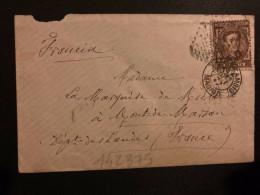 Francia
Madame
La Marquise de
à Mont de Marsan
Dépt. des Landes (France)
152375